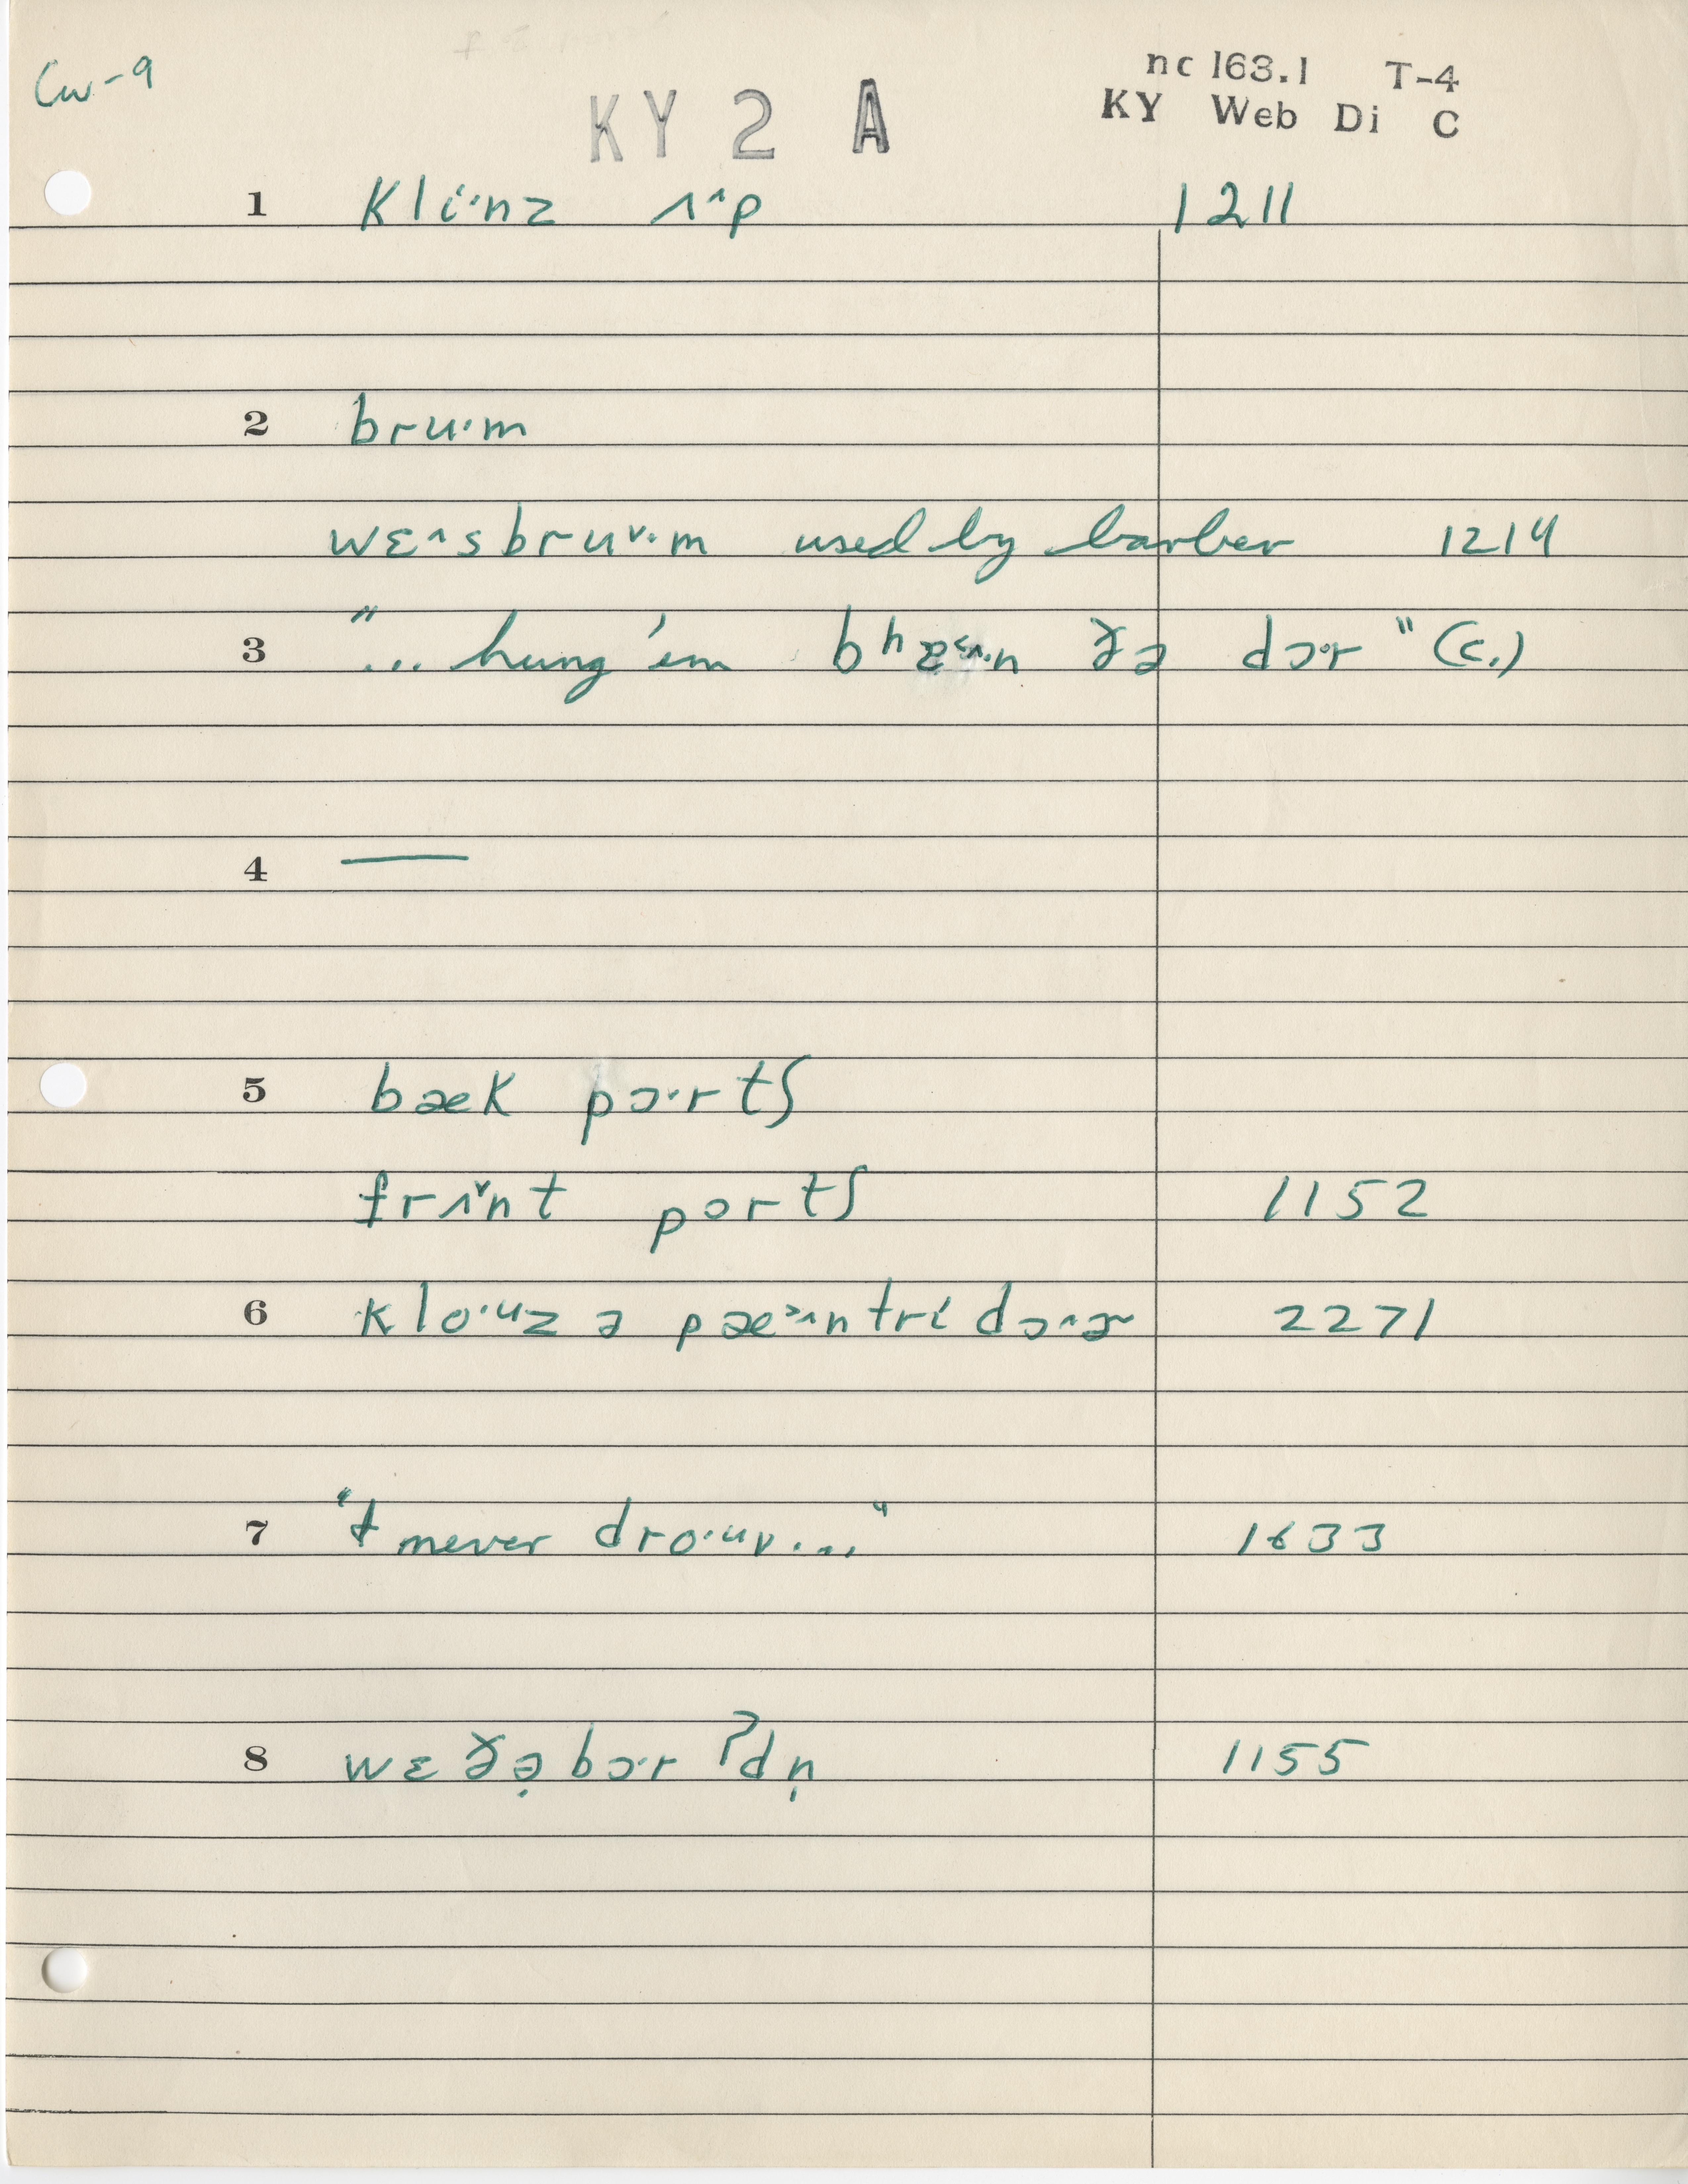 Cw-9
nc 163.1 T-4
KY 2 A
KY Web Di C
1 kli·nz ʌ^p 1211
2 bru·m
wɛ^sbruᵛ·m used by barber 1214
3 "... hung 'em ðə dɔ·r" (c.)
4 —
5 bæk pɔ·rtʃ
frʌᵛnt pɔrtʃ 1152
6 klo·ᵘz ə pæ^ntri dɔ^ɚ 2271
7 "I never dro·ᵘv..." 1633
8 wɛðə̣bɔ·rʔdn̩ 1155